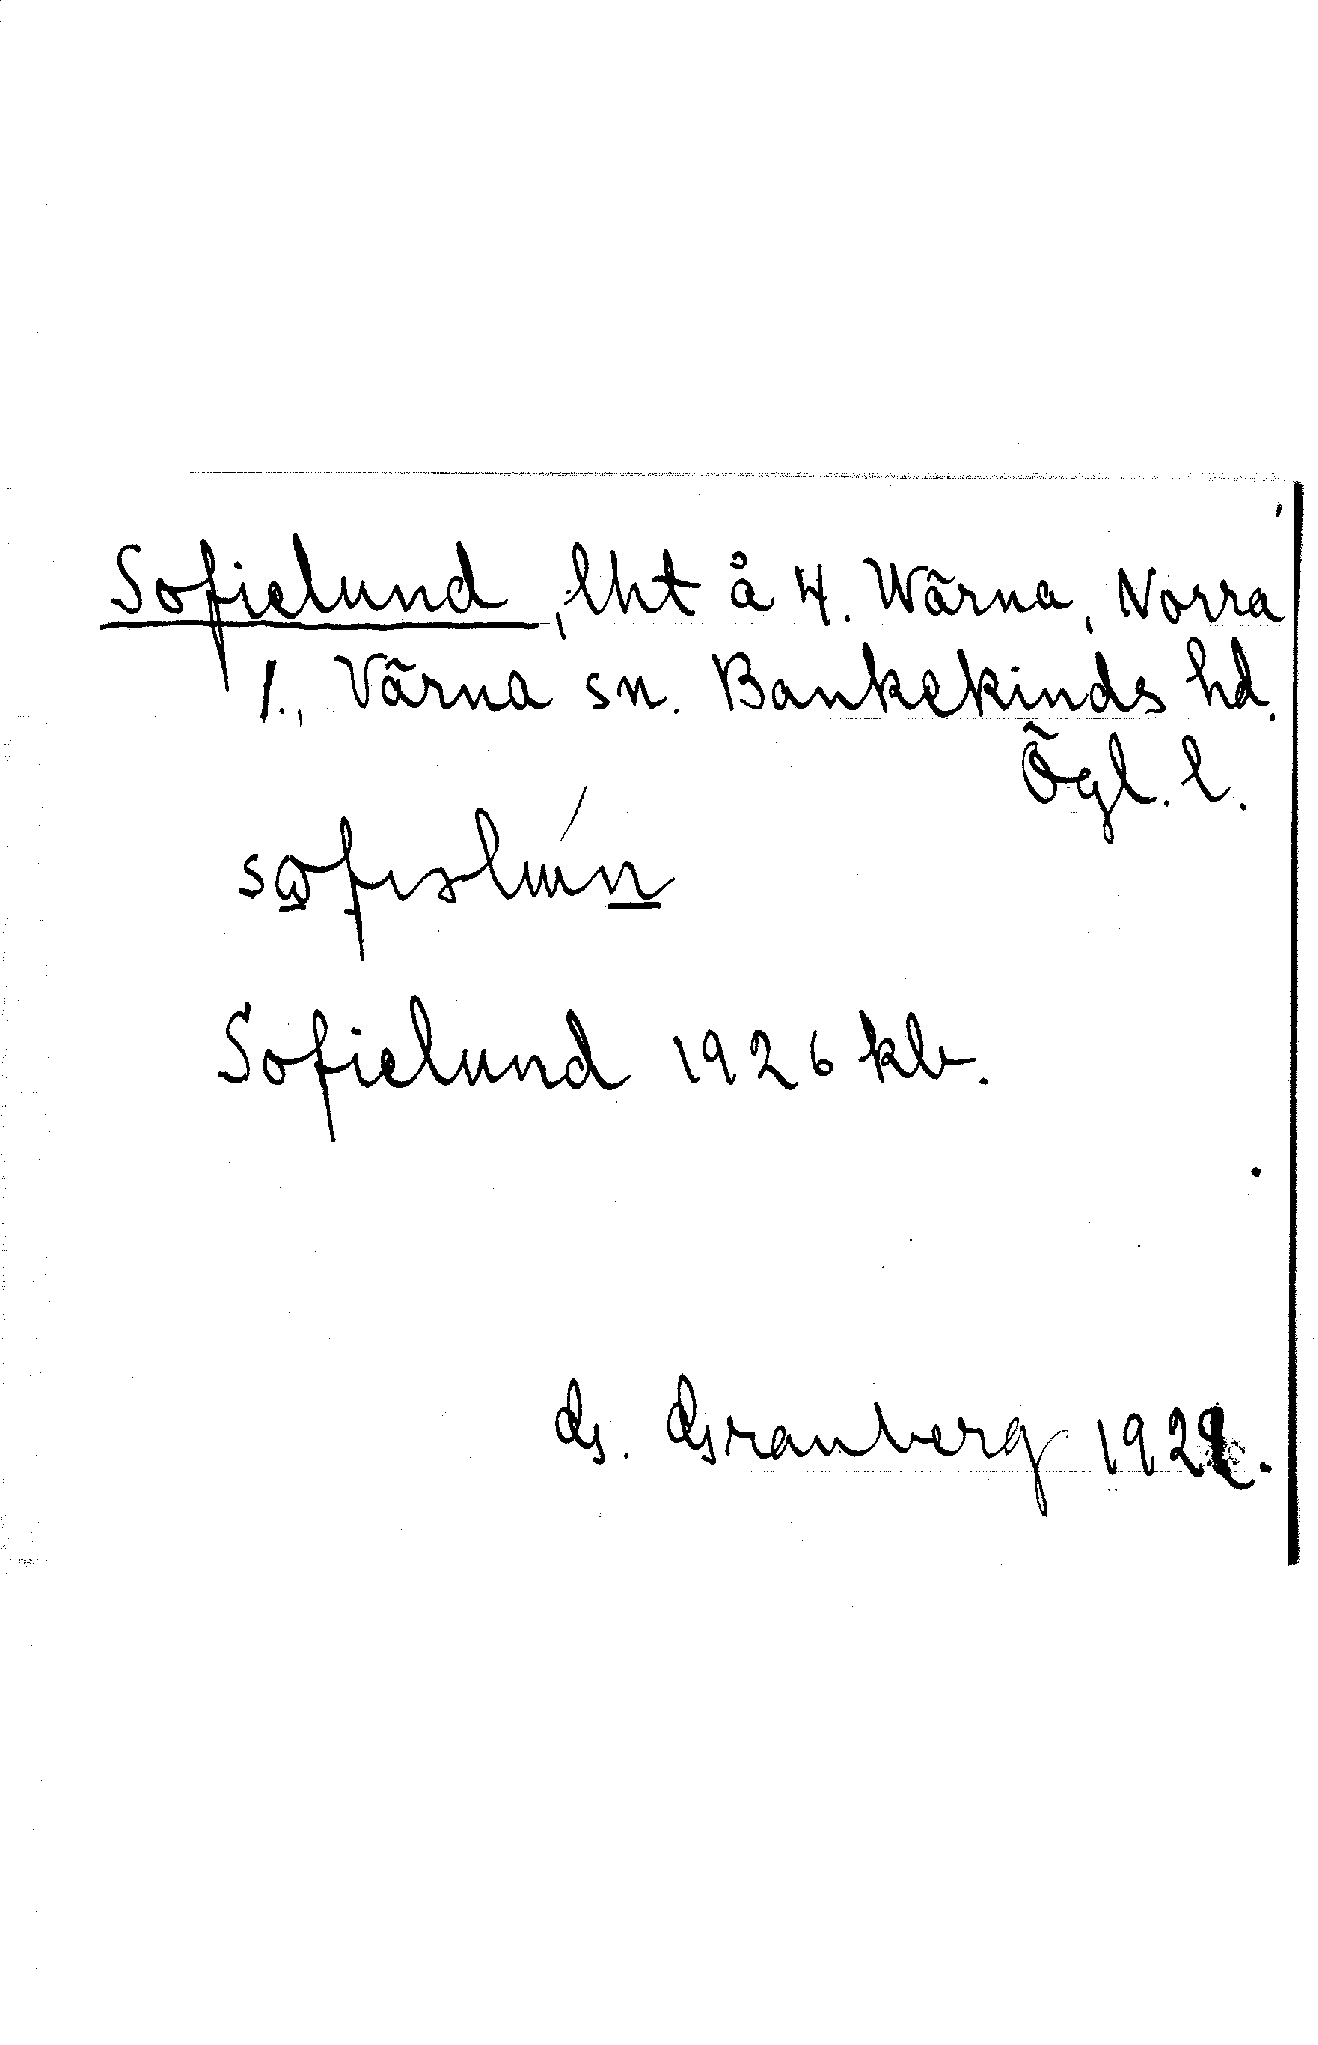 Sofielund, lht å 4. Wärna, Norra
1., Värna sn. Bankekinds hd.
Ögl. l.
Sofielund 1926 kb.
G. Granberg 192